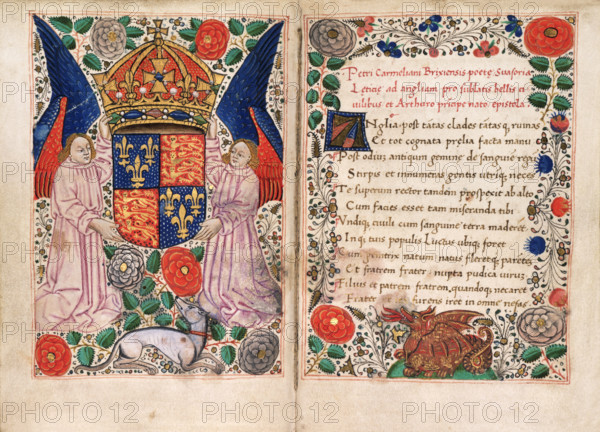 Petri Carmeliani Brixiensis poete Suasoria
Leticie ad angliam pro sublatis bellis ci
uilibus et Arthuro principe nato epistola.
Anglia post tātas clades tātasq; ruinas
Et tot cognata prelia facta manu
Post odium antiquum gemine de sanguine regis
Stirpis et innumeras gentis utriq; neces
Te superum rector tandem prospexit ab alto
Cum facies esset tam miseranda tibi
Vndiq; ciuili cum sanguine terra maderet
Inq; tuis populis Luctus ubiq; foret
Cum patrix natum natus fleretq; parētes
Et fratrem frater nupta pudica uirum
Filius et patrem fratrem, quandoq; necaret
Frater furens iret in omne nefas
PHOTO 12